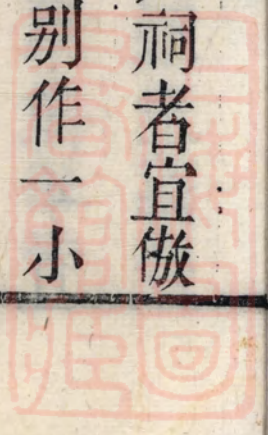 祠者宜倣
别作一小